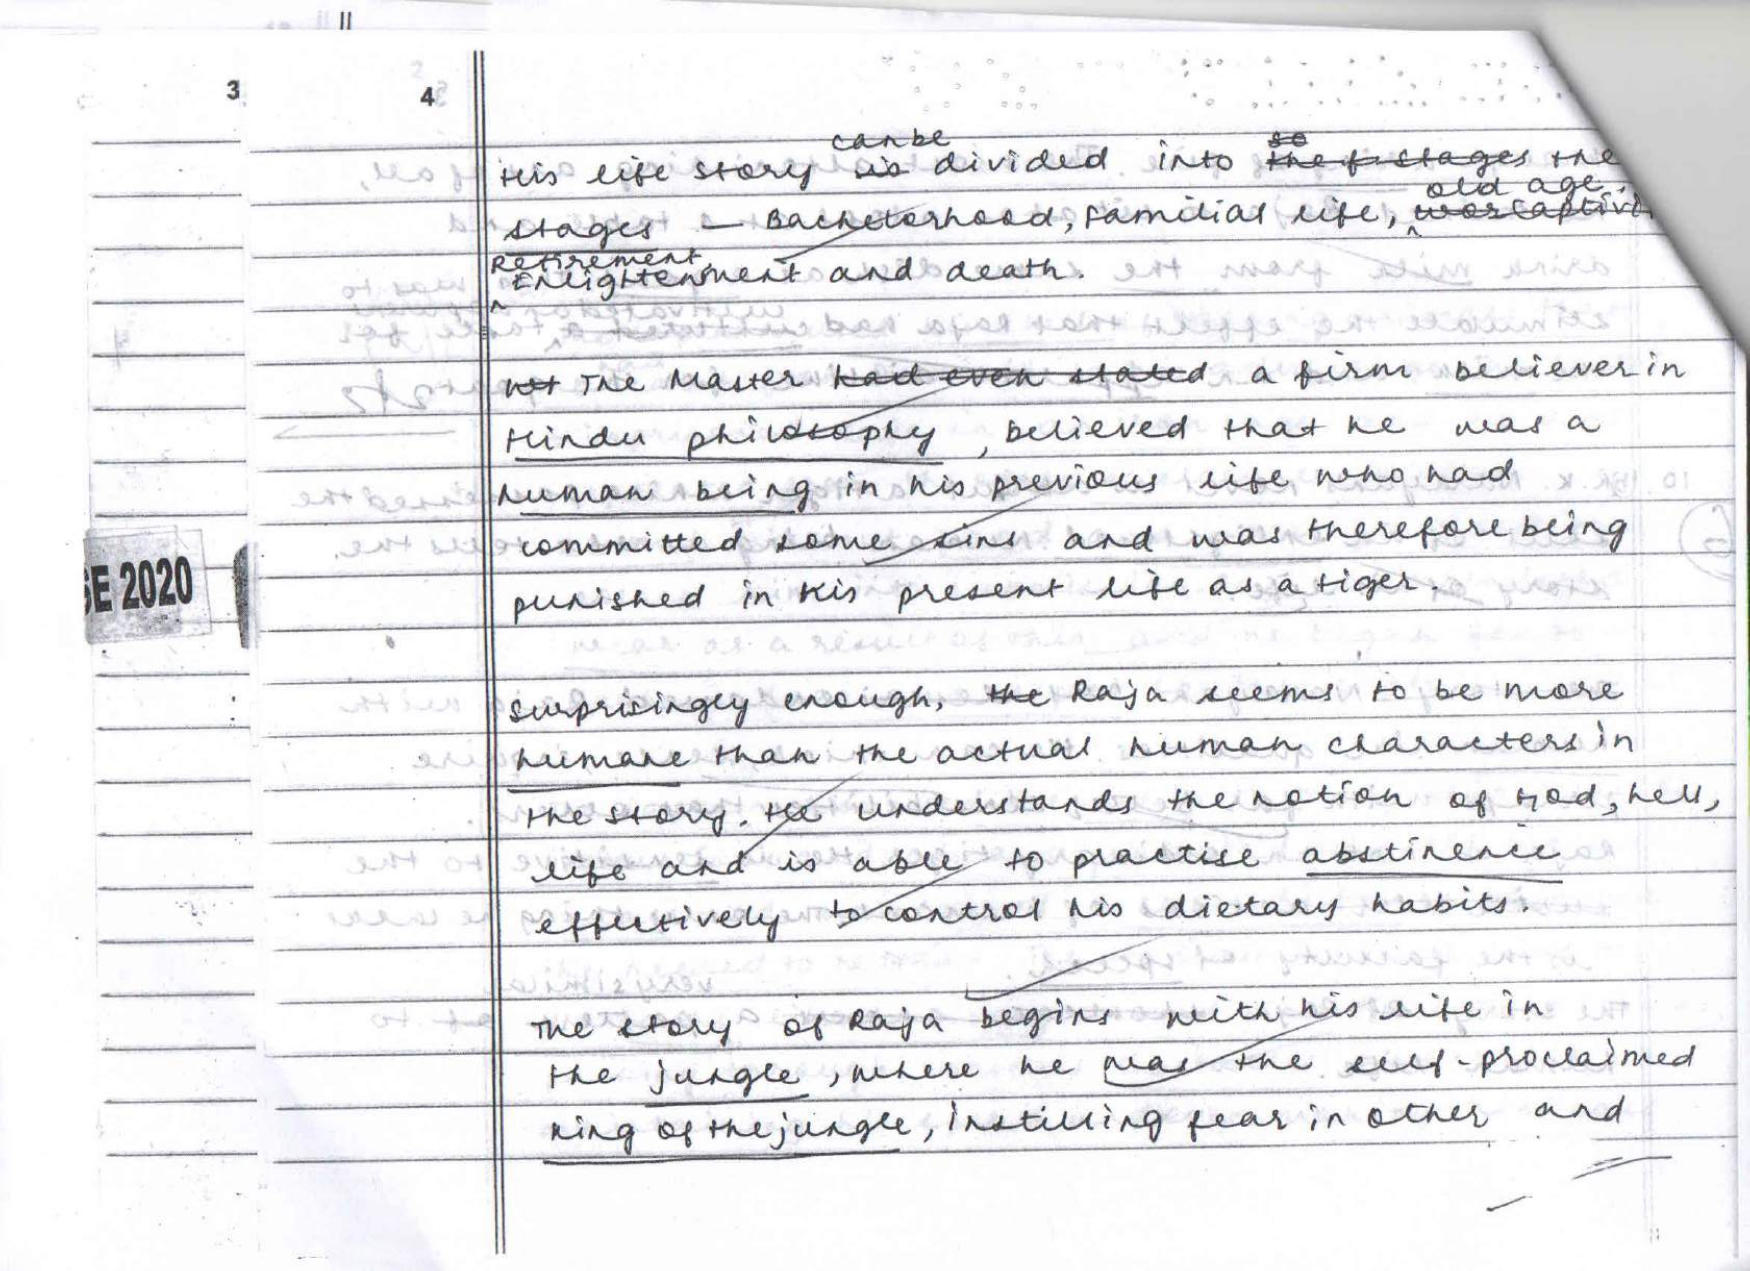 3
4
His life story can be divided into the
stages — Bachelorhood, Familial life, old age,
Retirement,
Enlightenment and death.
The Master a firm believer in
Hindu philosophy, believed that he was a
human being in his previous life who had
committed some sins and was therefore being
punished in his present life as a tiger.
Surprisingly enough, Raja seems to be more
humane than the actual human characters in
the story. He understands the notion of God, hell,
life and is able to practise abstinence
effectively to control his dietary habits.
The story of Raja begins with his life in
the jungle, where he was the self-proclaimed
king of the jungle, instilling fear in other and
SE 2020